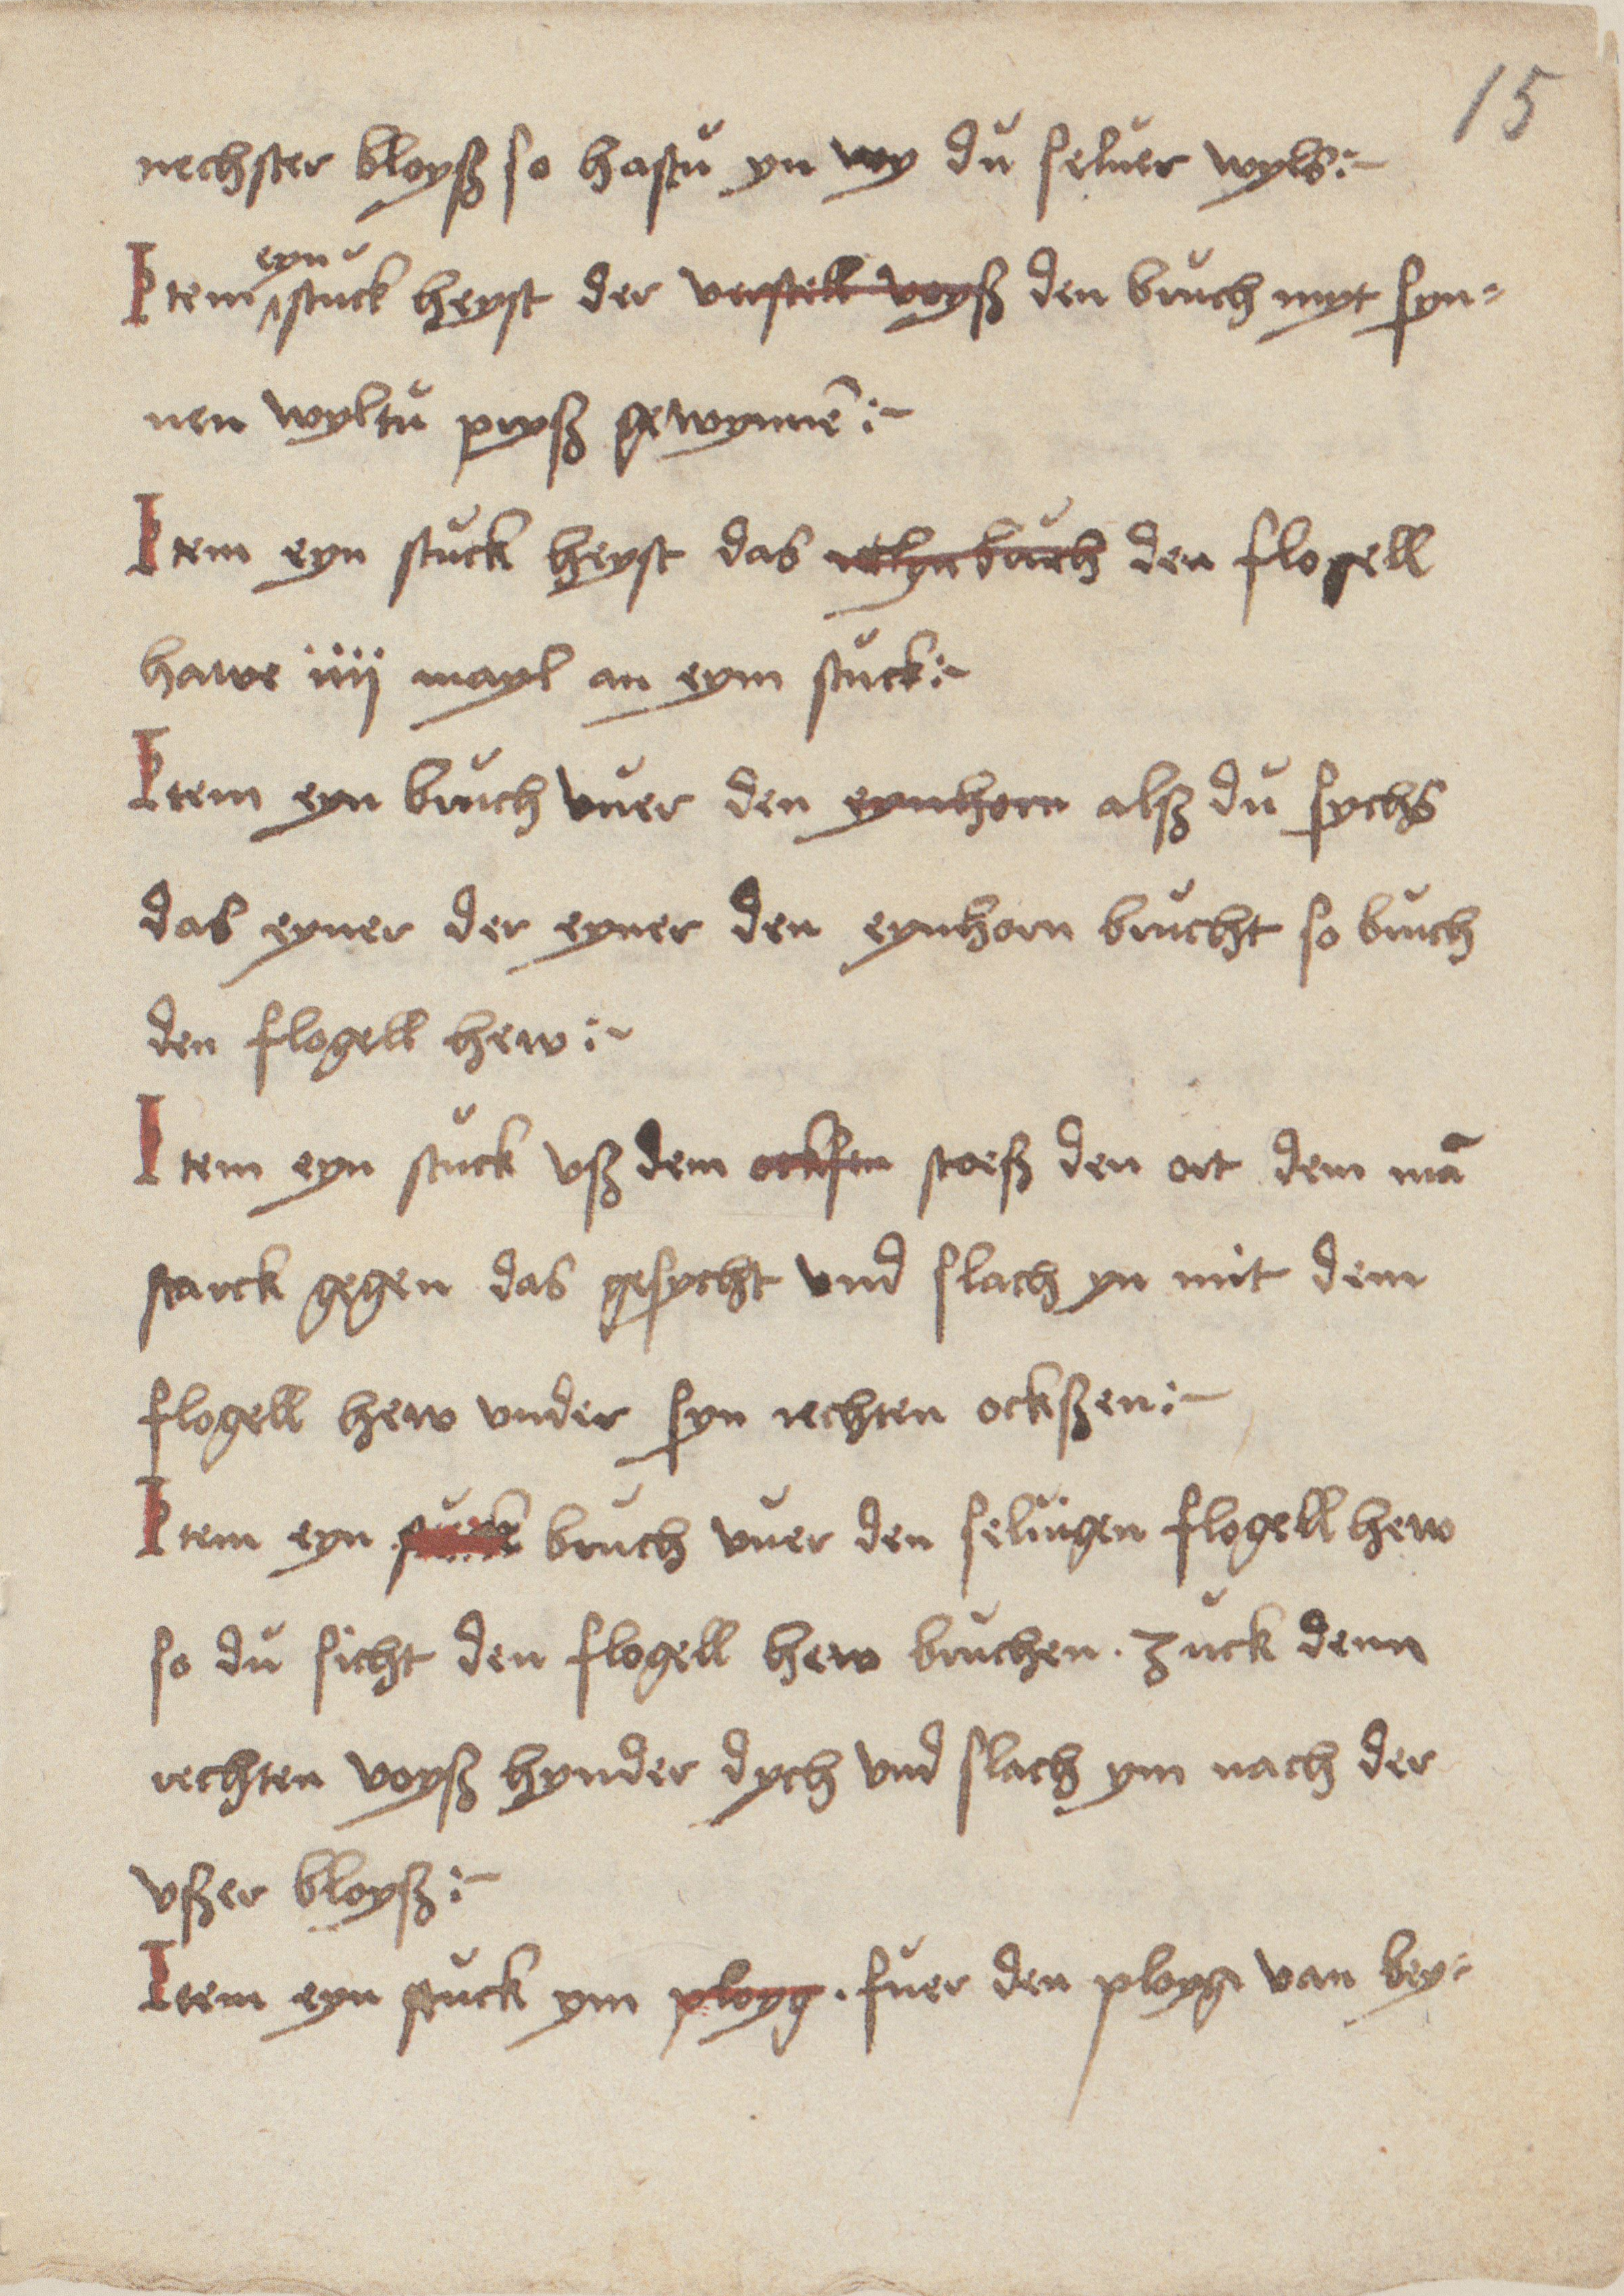 15
nechster bloyß so hastu yn wy du seluer wyls :~
eyn
Item stuck heyst der verstell voyß den bruch myt syn=
nen wyltu pryß gewynnē :~
Item eyn stuck heyst das den flogell
hawe iiij mayl an eym stuck :~
Item eyn bruch vuer den eynhorn alß du sychs
das eyner der eyner den eynhorn brucht so bruch
den flogell hew :~
Item eyn stuck vß dem ochsen stoeß den ort dem mā
starck gegen das gesycht vnd slach yn mit dem
flogell hew vnder syn rechten ockßen :~
Item eyn stuck bruch vuer den seluigen flogell hew
so du sicht den flogell hew bruchen . zuck denn
rechten voyß hynder dych vnd slach ym nach der
vßer bloyß :~
Item eyn stuck ym ployg . fuer den ployg van bey=